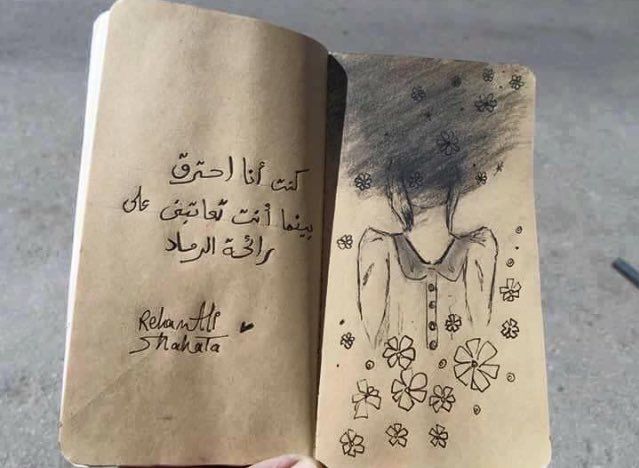 كنت أنا احترق
بينما أنت تعاتبني على
رائحة الرماد
Rehan Ali
Shahata